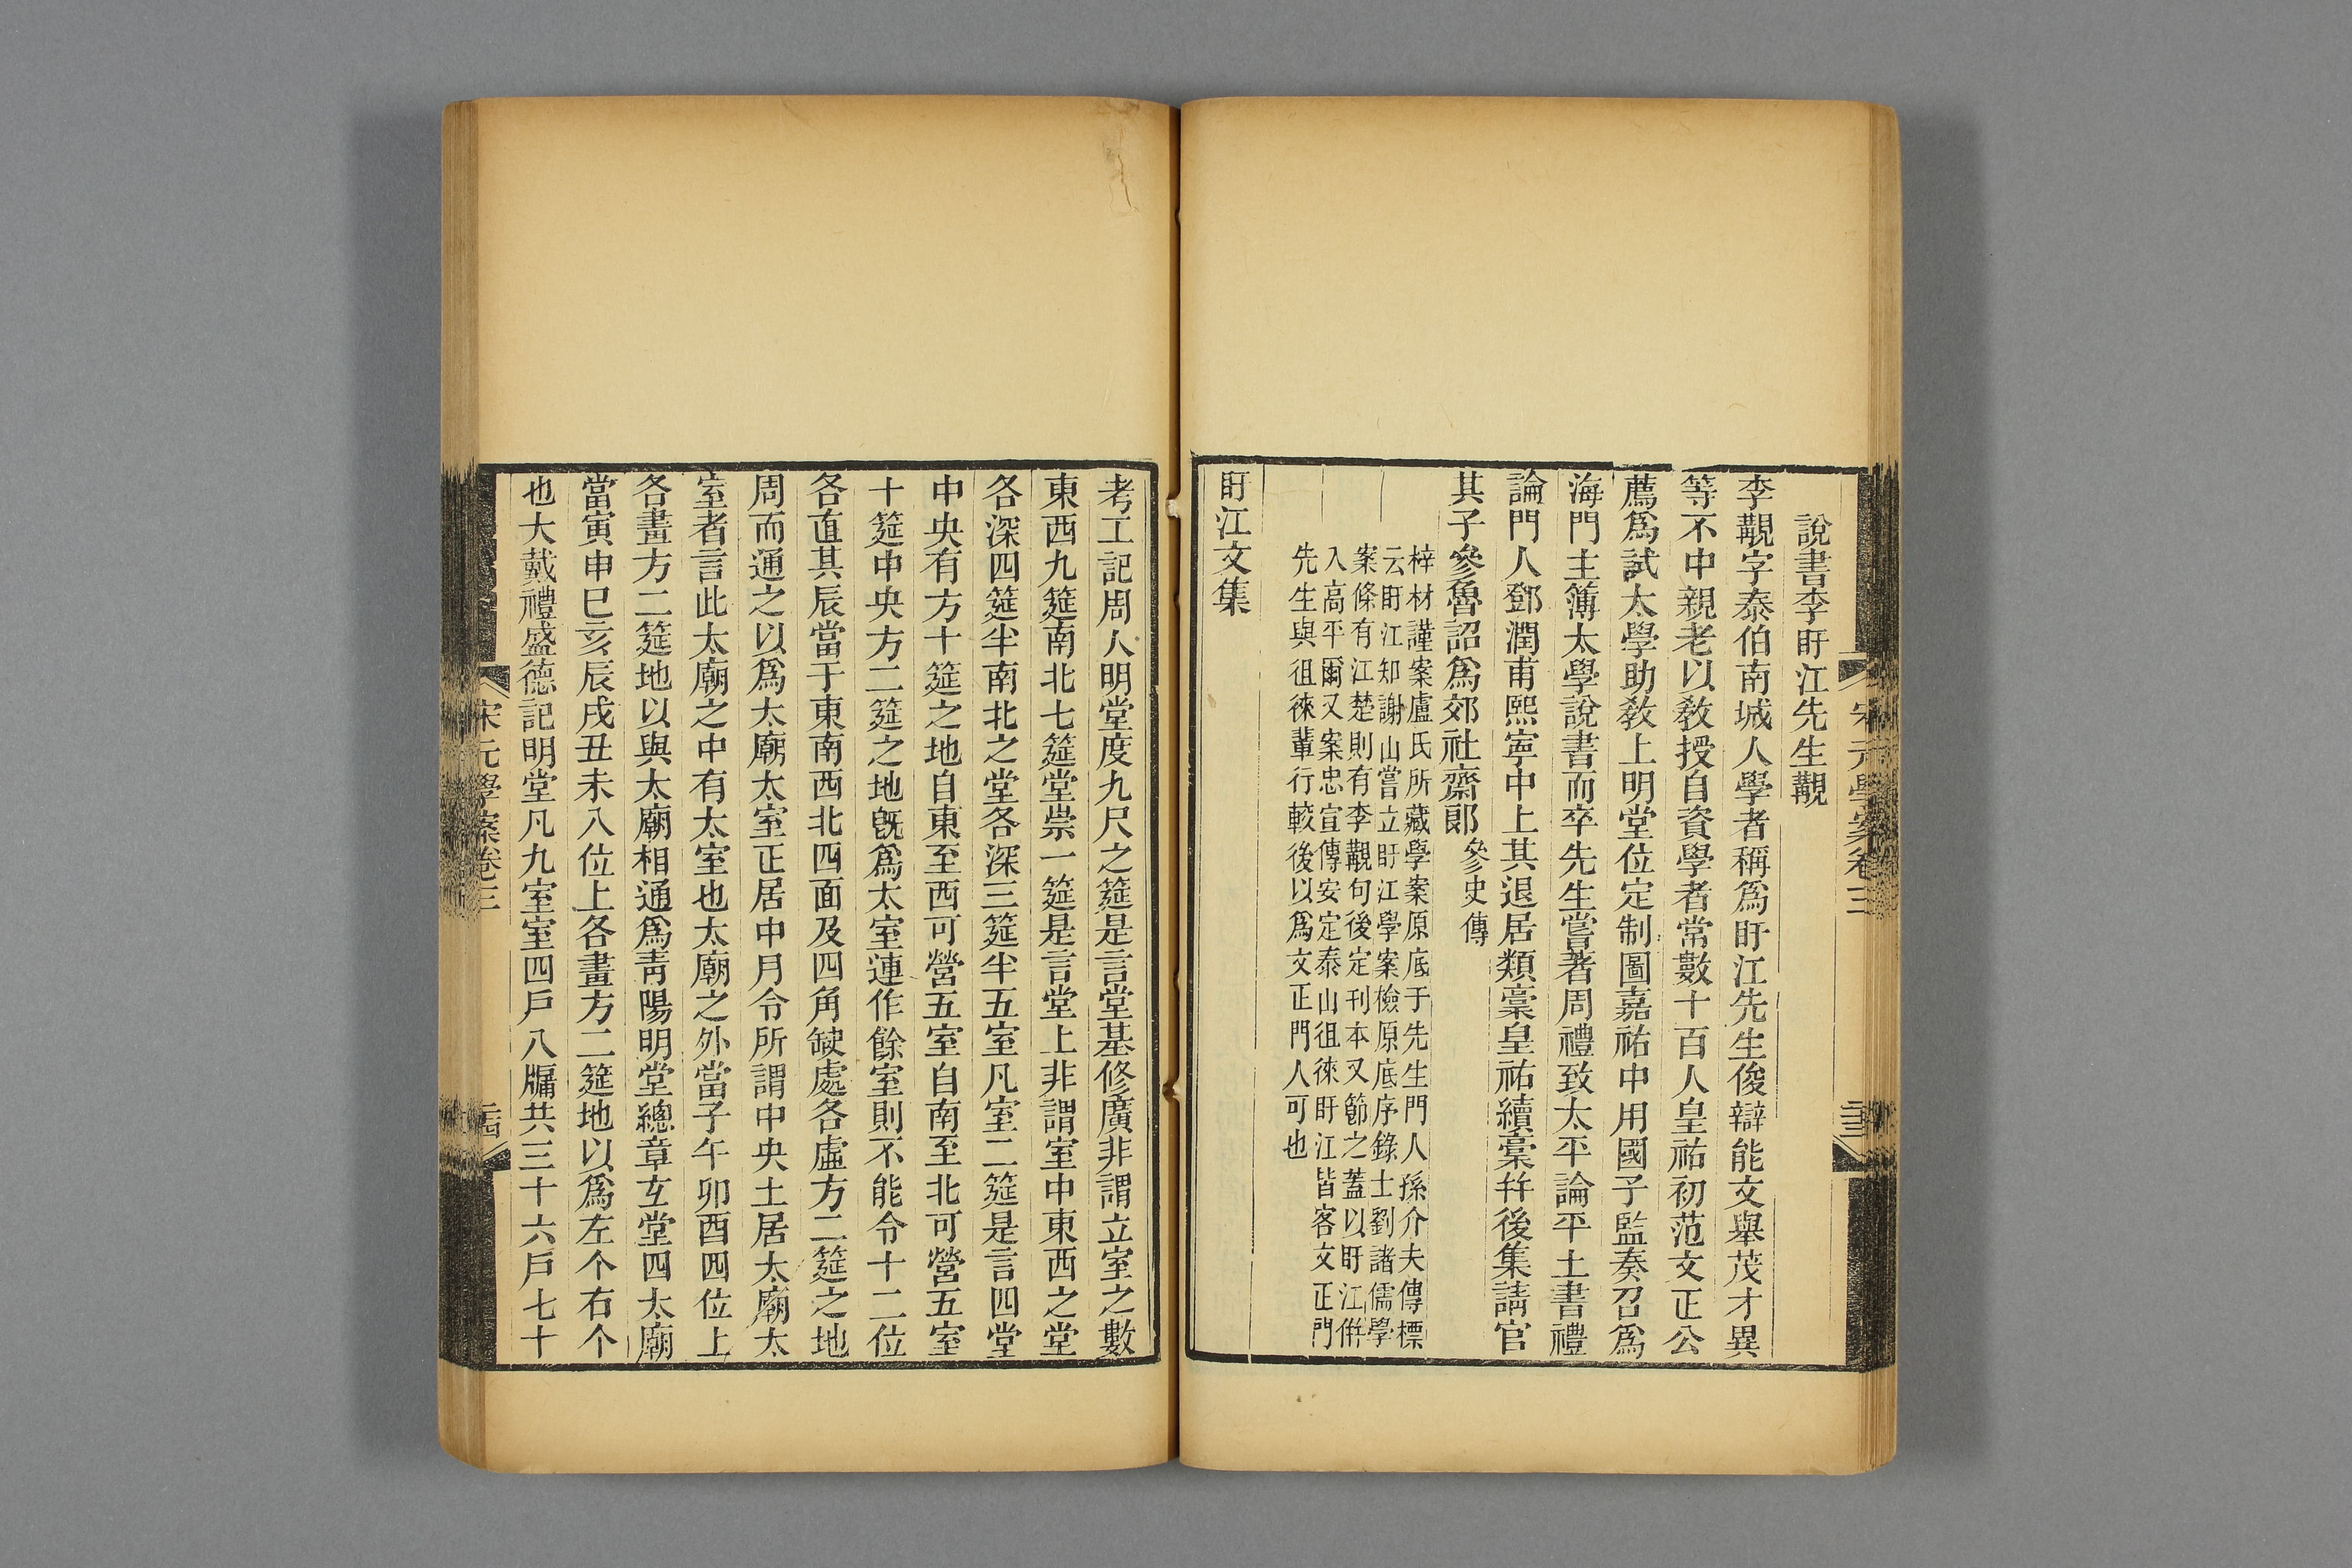 宋元學案卷三
說書李盱江先生覯
李覯字泰伯南城人學者稱爲盱江先生俊辯能文舉茂才異
等不中親老以敎授自資學者常數十百人皇祐初范文正公
薦爲試太學助敎上明堂位定制圖嘉祐中用國子監奏召爲
海門主簿太學說書而卒先生嘗著周禮致太平論平土書禮
論門人鄧潤甫熙寧中上其退居類稾皇祐續稾幷後集請官
其子參魯詔爲郊社齋郎參史傳
梓材謹案盧氏所藏學案原底于先生門人孫介夫傳標
云盱江知謝山嘗立盱江學案檢原底序錄士劉諸儒學
案條有江楚則有李覯句後定刊本又節之蓋以盱江倂
入高平爾又案忠宣傳安定泰山徂徠盱江皆客文正門
先生與徂徠輩行較後以爲文正門人可也
盱江文集
考工記周人明堂度九尺之筵是言堂基修廣非謂立室之數
東西九筵南北七筵堂崇一筵是言堂上非謂室中東西之堂
各深四筵半南北之堂各深三筵半五室凡室二筵是言四堂
中央有方十筵之地自東至西可營五室自南至北可營五室
十筵中央方二筵之地旣爲太室連作餘室則不能令十二位
各直其辰當于東南西北四面及四角缺處各虛方二筵之地
周而通之以爲太廟太室正居中月令所謂中央土居太廟太
室者言此太廟之中有太室也太廟之外當子午卯酉四位上
各畫方二筵地以與太廟相通爲靑陽明堂總章玄堂四太廟
當寅申巳亥辰戌丑未八位上各畫方二筵地以爲左个右个
也大戴禮盛德記明堂凡九室室四戶八牖共三十六戶七十
宋元學案卷三